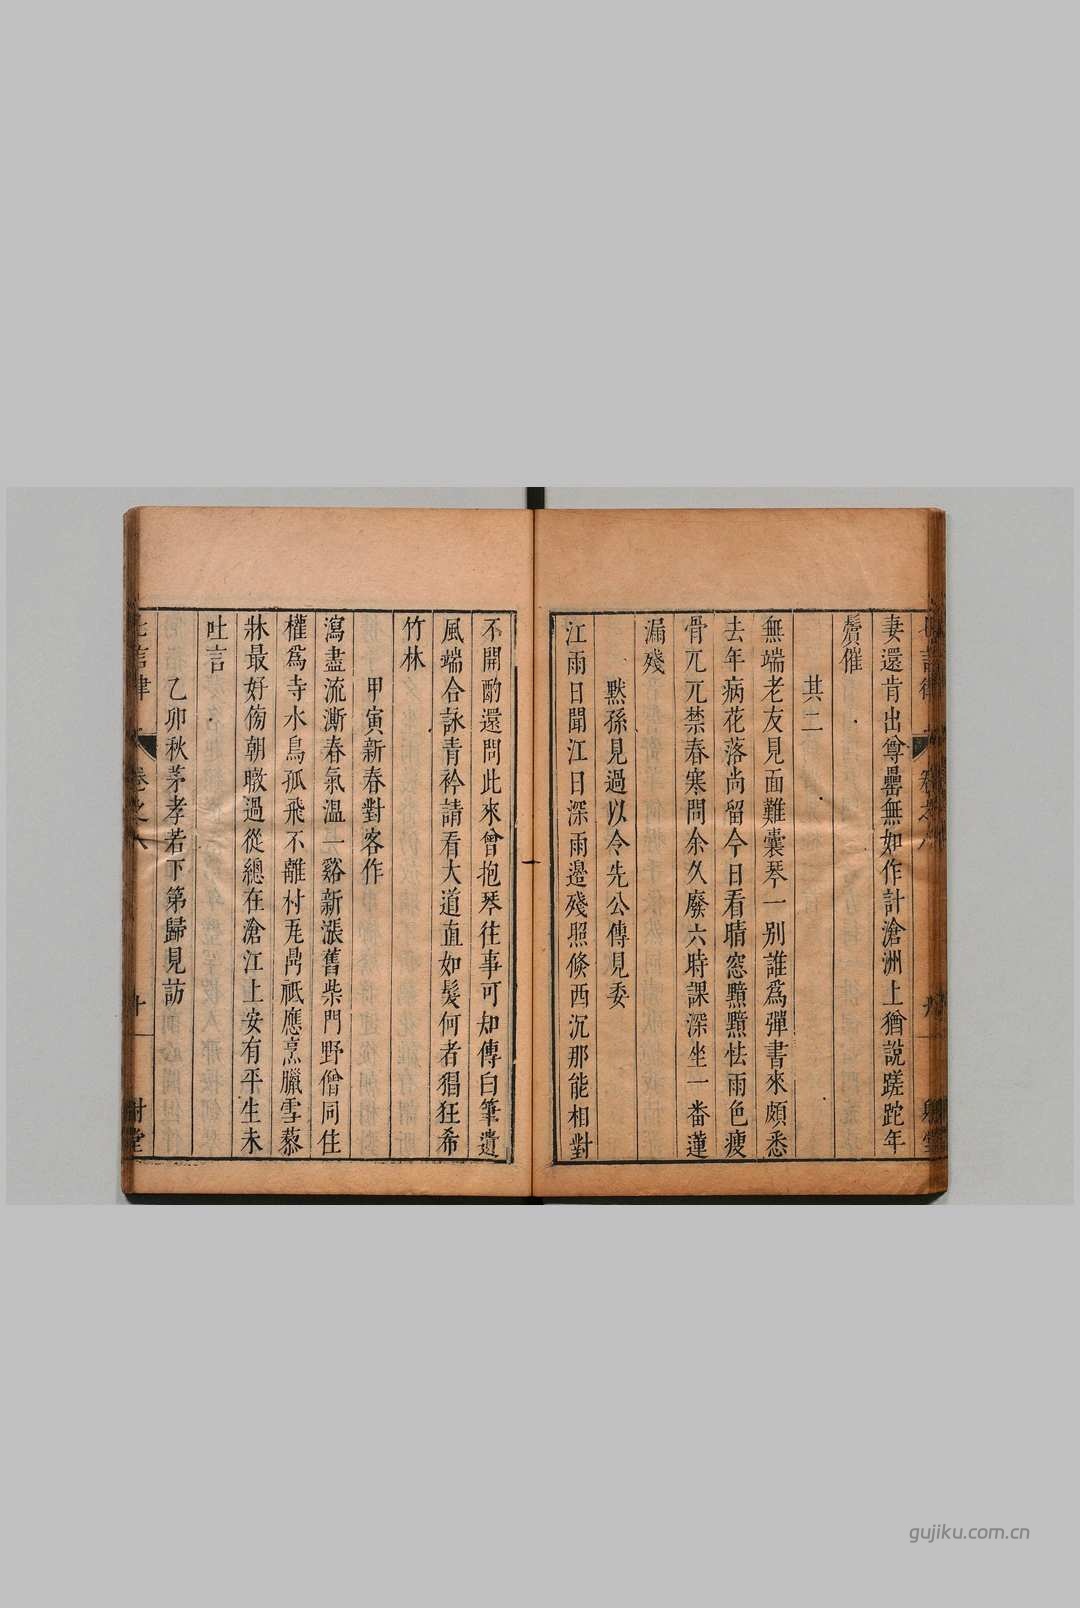 妻還肯出尊罍無如作計滄洲上猶說蹉跎年
鬢催
其二
無端老友見面難囊琴一別誰爲彈書來頗悉
去年病花落尚留今日看晴窓黯黯怯雨色瘦
骨兀兀禁春寒問余久廢六時課深坐一番蓮
漏殘
默孫見過以令先公傳見委
江雨日聞江日深雨邉殘照倐西沉那能相對
不開酌還問此來曾抱琴往事可知傳白筆遺
風端合詠青衿請看大道直如髮何者猖狂希
竹林
甲寅新春對客作
瀉盡流澌春氣溫一谿新漲舊柴門野僧同住
權爲寺水鳥孤飛不離村瓦鼎祗應烹臘雪藜
牀最好傍朝暾過從總在滄江上安有平生未
吐言
乙卯秋茅孝若下第歸見訪
七言律
卷之八
十
gujiku.com.cn